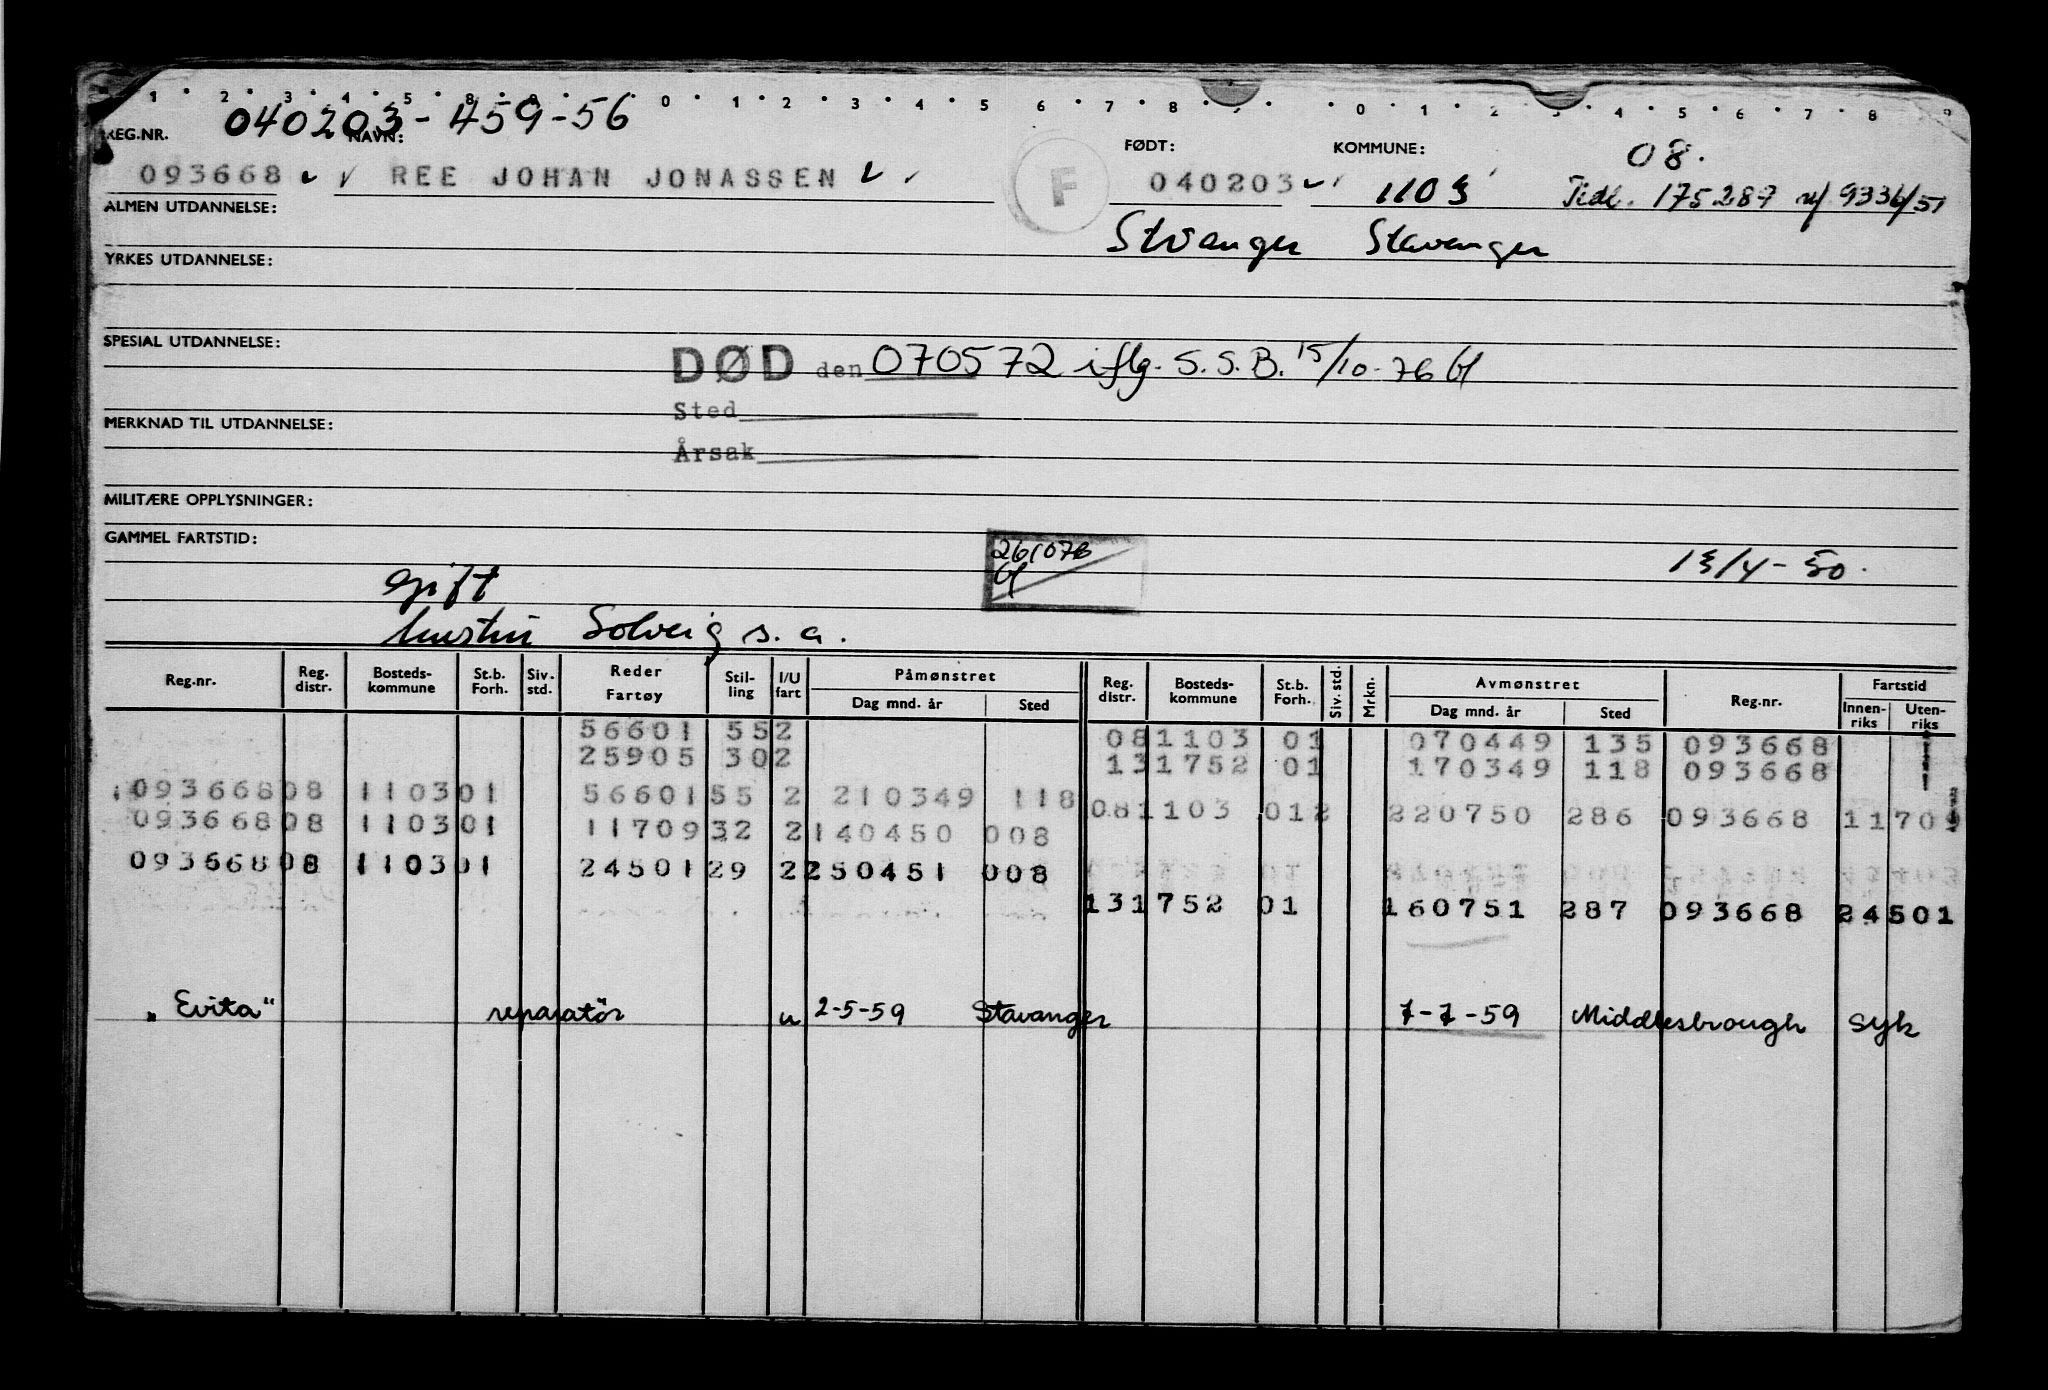 1 · 2 · 3 · 4 · 5 · 8 · 9 · 0 · 1 · 2 · 3 · 4 · 5 · 6 · 7 · 8 · 0 · 1 · 2 3 · 4 · 5 · 6 · 7 · 8 · 9
040203-459-56
REG.NR. NAVN: FØDT: KOMMUNE: 08.
093668 REE JOHAN JONASSEN F 040203 1103 Tidl. 175287 9336/51
ALMEN UTDANNELSE: Stvanger Stavanger
YRKES UTDANNELSE:
SPESIAL UTDANNELSE:
DØD den 070572 iflg. S.S.B. 15/10-76
Sted
MERKNAD TIL UTDANNELSE:
Årsak
MILITÆRE OPPLYSNINGER:
GAMMEL FARTSTID:
261076
13/4-50.
gift
hustru Solveig s.a.
Reg.nr. Reg. distr. Bosteds-kommune St.b. Forh. Siv. std. Reder Fartøy Stil-ling I/U fart Påmønstret Dag mnd. år Sted Reg. distr. Bosteds-kommune St.b. Forh. Siv. std. Mrkn. Avmønstret Dag mnd. år Sted Reg.nr. Fartstid Innen-riks Uten-riks
56601 55 2 08 1103 01 070449 135 093668
25905 30 2 13 1752 01 170349 118 093668
093668 08 1103 01 56601 55 2 210349 118
08 1103 01 2 220750 286 093668 11709
093668 08 1103 01 11709 32 2 140450 008
093668 08 1103 01 24501 29 2 250451 008
13 1752 01 160751 287 093668 24501
"Evita" reparatör u 2-5-59 Stavanger 7-7-59 Middlesbrough syk